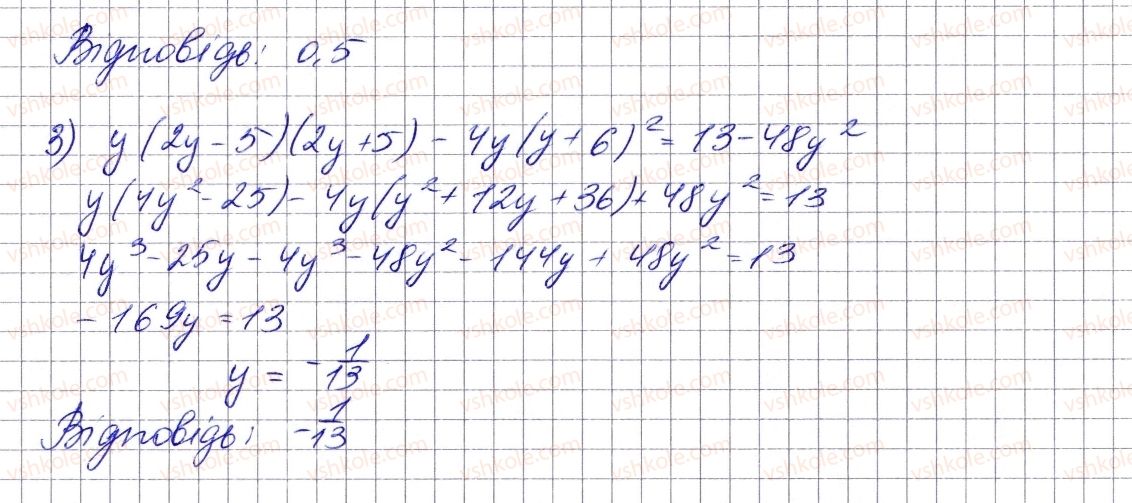 Відповідь: 0,5
3) y(2y-5)(2y+5) - 4y(y+6)² = 13-48y²
y(4y²-25) - 4y(y²+12y+36) + 48y² = 13
4y³-25y-4y³-48y²-144y+48y²=13
-169y=13
y = -1/13
Відповідь: -1/13